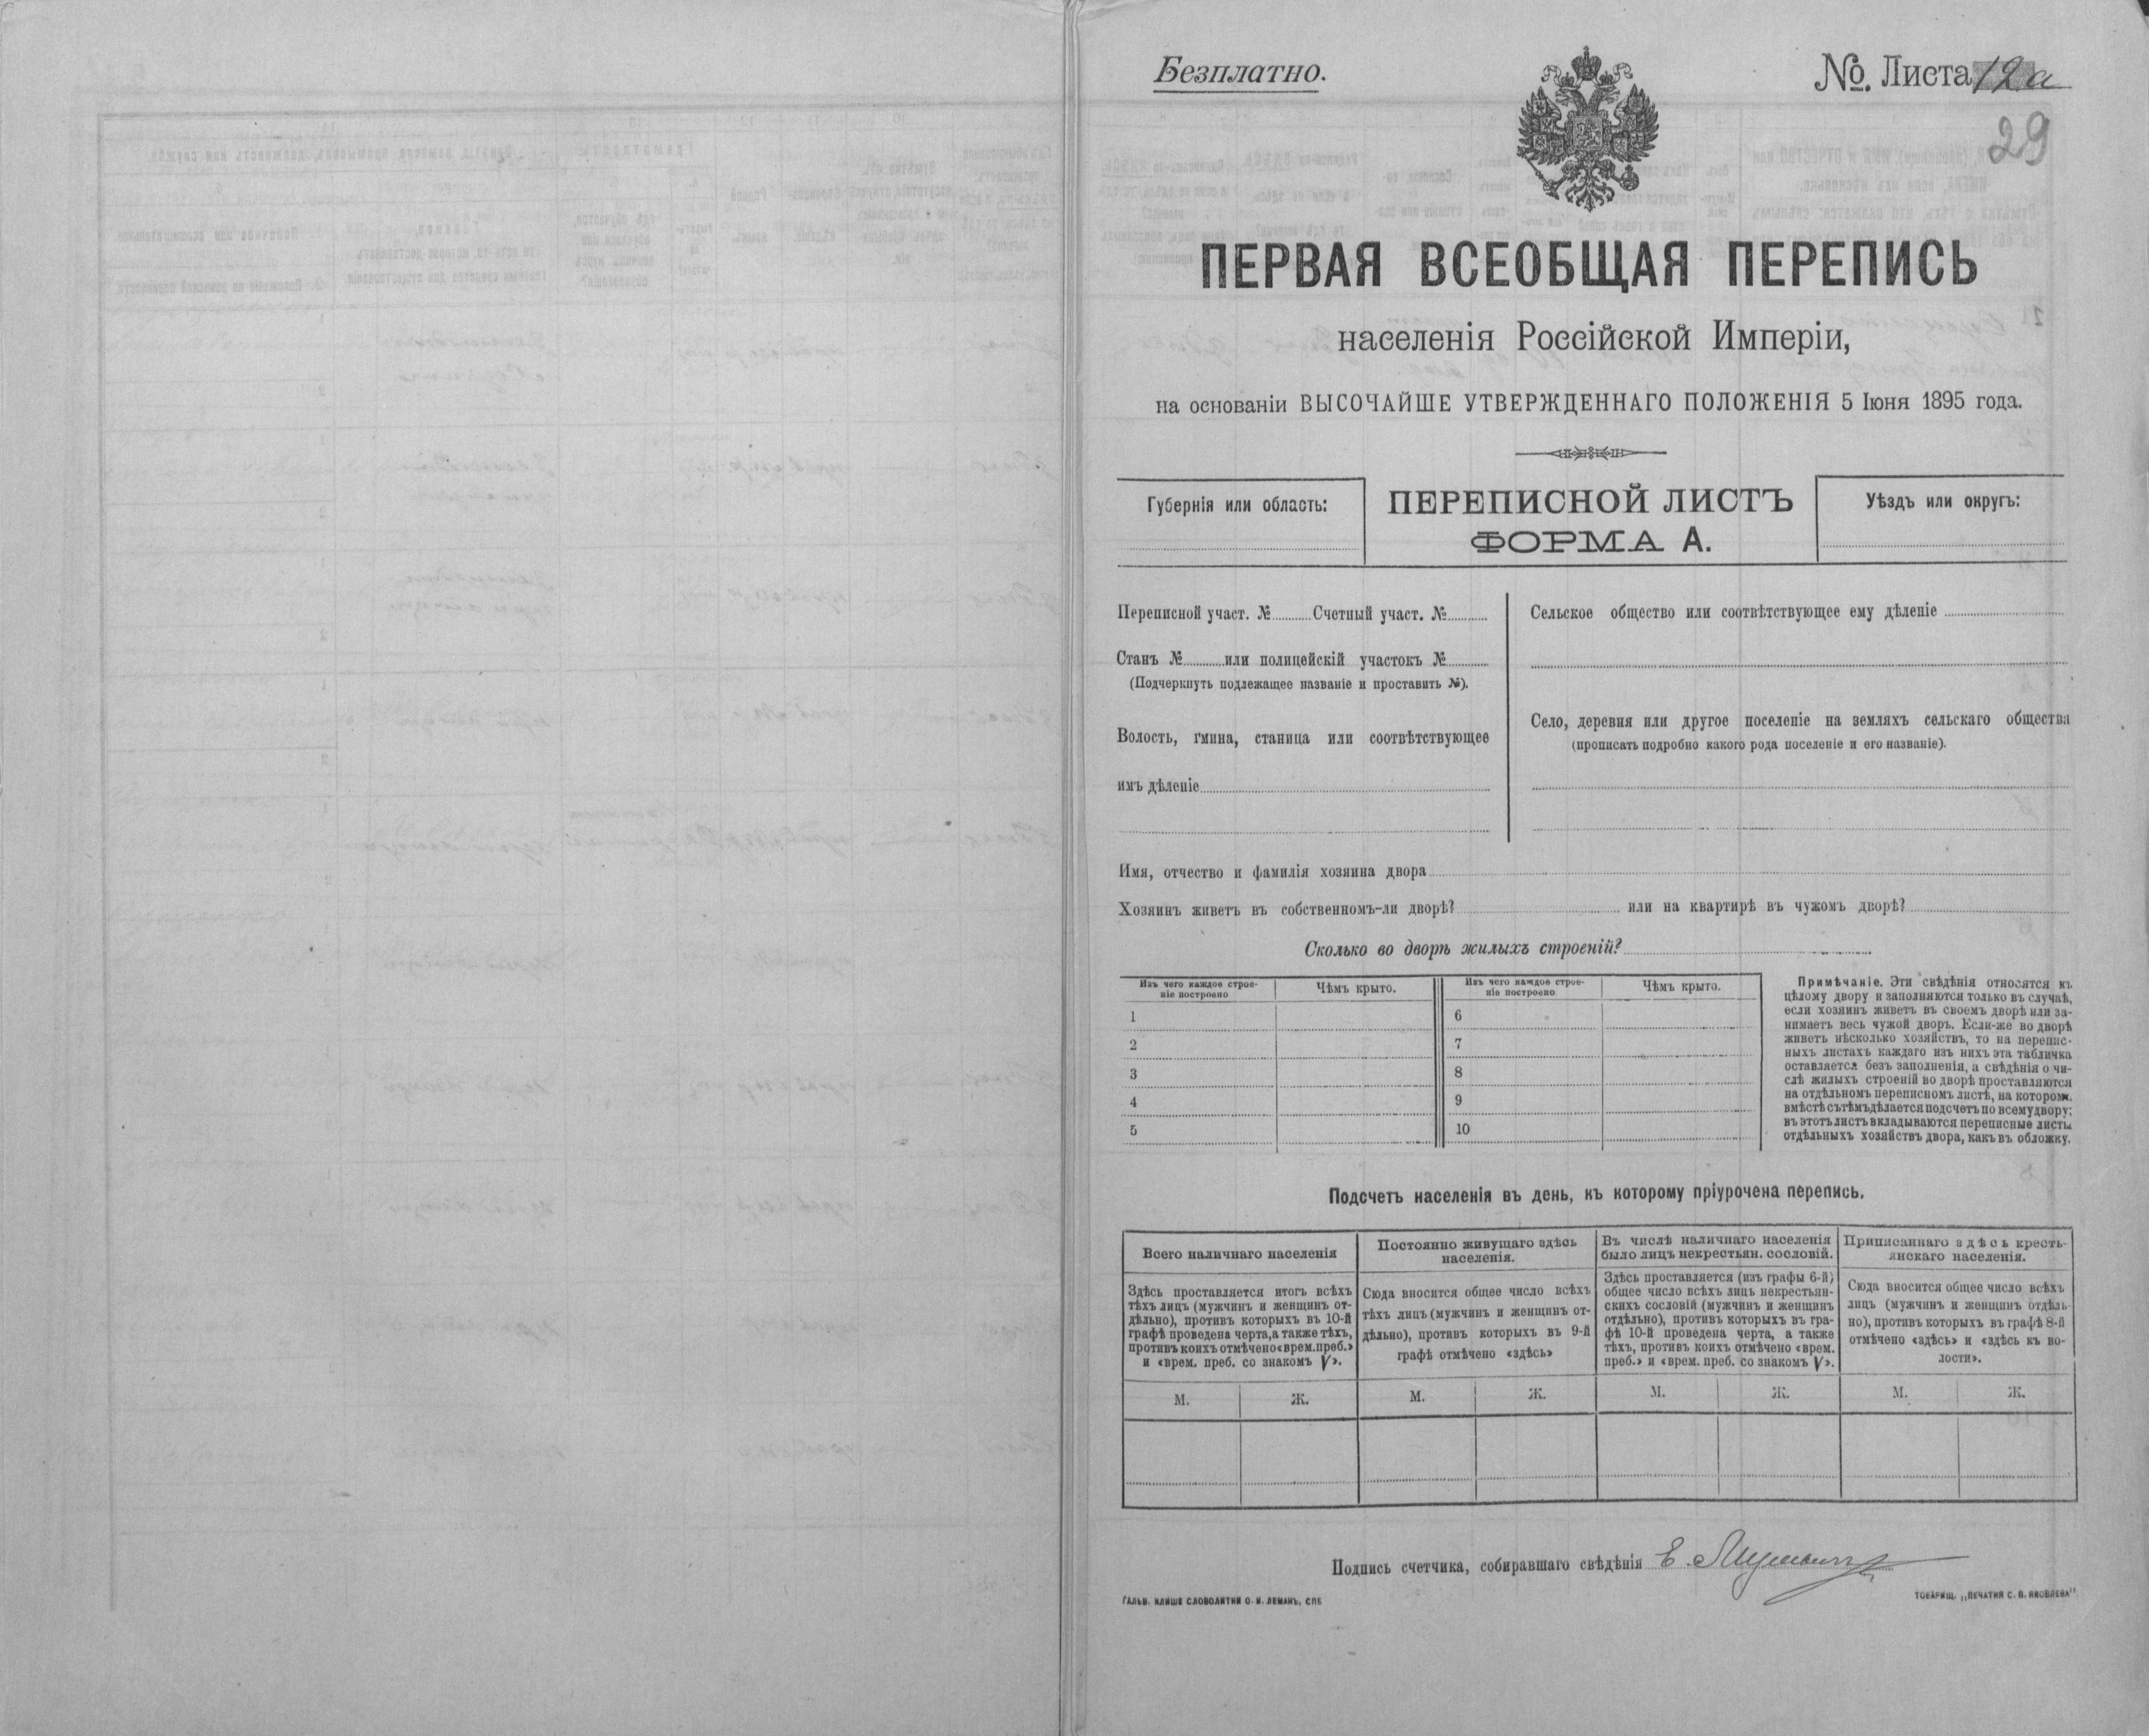 Безплатно.
№. Листа 12а
29
ПЕРВАЯ ВСЕОБЩАЯ ПЕРЕПИСЬ
населенія Россійской Имперіи,
на основаніи ВЫСОЧАЙШЕ УТВЕРЖДЕННАГО ПОЛОЖЕНІЯ 5 Іюня 1895 года.
Губернія или область:
ПЕРЕПИСНОЙ ЛИСТЪ
ФОРМА А.
Уѣздъ или округъ:
Переписной участ. № Счетный участ. №
Станъ № или полицейскій участокъ №
(Подчеркнуть подлежащее названіе и проставить №).
Волость, гмина, станица или соотвѣтствующее
имъ дѣленіе
Сельское общество или соотвѣтствующее ему дѣленіе
Село, деревня или другое поселеніе на земляхъ сельскаго общества
(прописать подробно какого рода поселеніе и его названіе).
Имя, отчество и фамилія хозяина двора
Хозяинъ живетъ въ собственномъ-ли дворѣ? или на квартирѣ въ чужомъ дворѣ?
Сколько во дворѣ жилыхъ строеній?
Изъ чего каждое строе-
ніе построено
Чѣмъ крыто.
Изъ чего каждое строе-
ніе построено
Чѣмъ крыто.
1
2
3
4
5
6
7
8
9
10
Примѣчаніе. Эти свѣдѣнія относятся къ
цѣлому двору и заполняются только въ случаѣ,
если хозяинъ живетъ въ своемъ дворѣ или за-
нимаетъ весь чужой дворъ. Если-же во дворѣ
живетъ нѣсколько хозяйствъ, то на перепис-
ныхъ листахъ каждаго изъ нихъ эта табличка
оставляется безъ заполненія, а свѣдѣнія о чи-
слѣ жилыхъ строеній во дворѣ проставляются
на отдѣльномъ переписномъ листѣ, на которомъ
вмѣстѣ съ тѣмъ дѣлается подсчетъ по всему двору;
въ этотъ листъ вкладываются переписные листы
отдѣльныхъ хозяйствъ двора, какъ въ обложку.
Подсчетъ населенія въ день, къ которому пріурочена перепись.
Всего наличнаго населенія
Здѣсь проставляется итогъ всѣхъ
тѣхъ лицъ (мужчинъ и женщинъ от-
дѣльно), противъ которыхъ въ 10-й
графѣ проведена черта, а также тѣхъ,
противъ коихъ отмѣчено «врем. преб.»
и «врем. преб. со знакомъ V».
Постоянно живущаго здѣсь
населенія.
Сюда вносится общее число всѣхъ
тѣхъ лицъ (мужчинъ и женщинъ от-
дѣльно), противъ которыхъ въ 9-й
графѣ отмѣчено «здѣсь»
Въ числѣ наличнаго населенія
было лицъ некрестьян. сословій.
Здѣсь проставляется (изъ графы 6-й)
общее число всѣхъ лицъ некрестьян-
скихъ сословій (мужчинъ и женщинъ
отдѣльно), противъ которыхъ въ гра-
фѣ 10-й проведена черта, а также
тѣхъ, противъ коихъ отмѣчено «врем.
преб.» и «врем. преб. со знакомъ V».
Приписаннаго здѣсь кресть-
янскаго населенія.
Сюда вносится общее число всѣхъ
лицъ (мужчинъ и женщинъ отдѣль-
но), противъ которыхъ въ графѣ 8-й
отмѣчено «здѣсь» и «здѣсь къ во-
лости».
М. Ж. М. Ж. М. Ж. М. Ж.
Подпись счетчика, собиравшаго свѣдѣнія Е
ГАЛЬВ. КЛИШЕ СЛОВОЛИТНИ О. И. ЛЕМАНЪ, СПБ
ТОВАРИЩ. „ПЕЧАТНЯ С. П. ЯКОВЛЕВА"